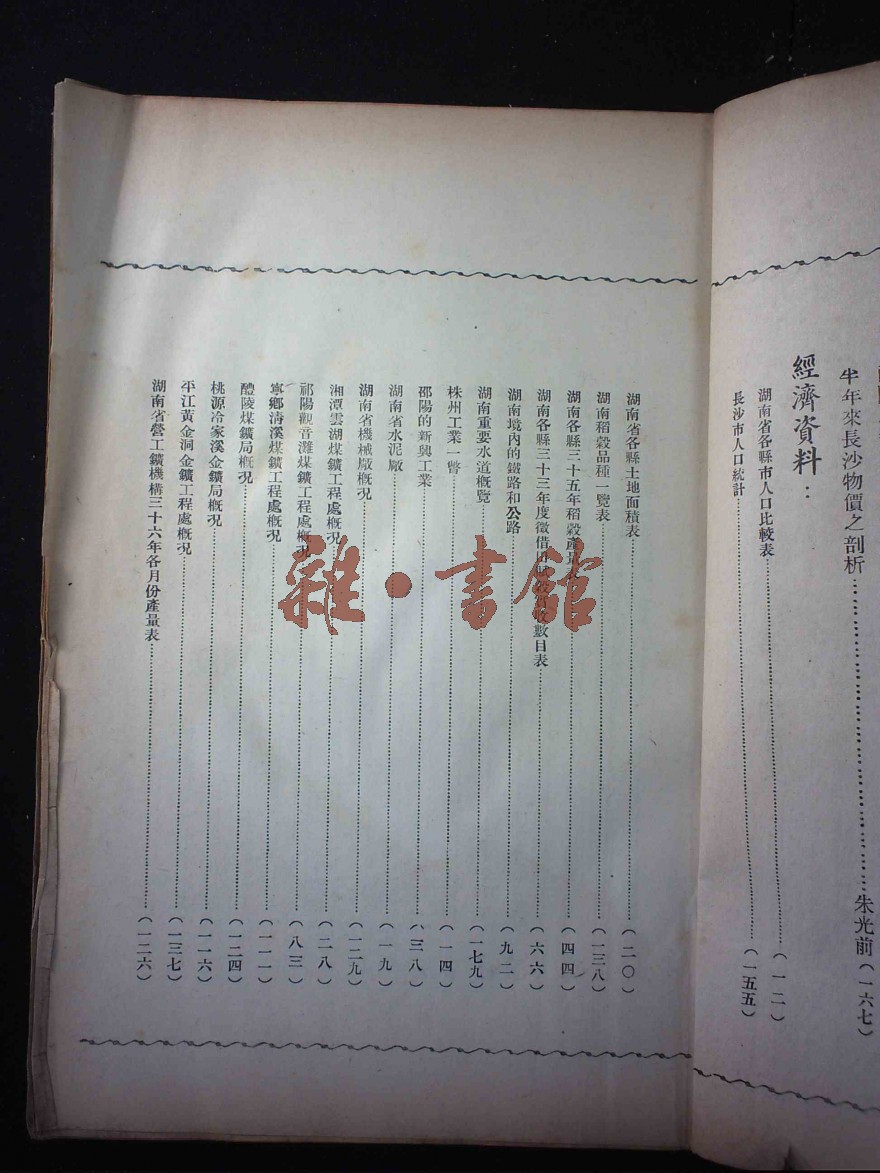 半年來長沙物價之剖析……朱光前(一六七)
經濟資料：
湖南省各縣市人口比較表……(一二)
長沙市人口統計……(一五五)
湖南省各縣土地面積表……(二〇)
湖南稻穀品種一覽表……(一三八)
湖南各縣三十五年稻穀產量……(四四)
湖南各縣三十三年度徵借 數目表……(六六)
湖南境內的鐵路和公路……(九二)
湖南重要水道概覽……(一七九)
株州工業一瞥……(一四)
邵陽的新興工業……(三八)
湖南省水泥廠……(一九)
湖南省機械廠概況……(一二九)
湘潭雲湖煤鑛工程處概況……(二八)
祁陽觀音灘煤鑛工程處概況……(八三)
寧鄉清溪煤鑛工程處概況……(一一一)
醴陵煤鑛局概況……(一二四)
桃源冷家溪金鑛局概況……(一一六)
平江黃金洞金鑛工程處概況……(一三七)
湖南省營工鑛機構三十六年各月份產量表……(一二六)
雜·書館